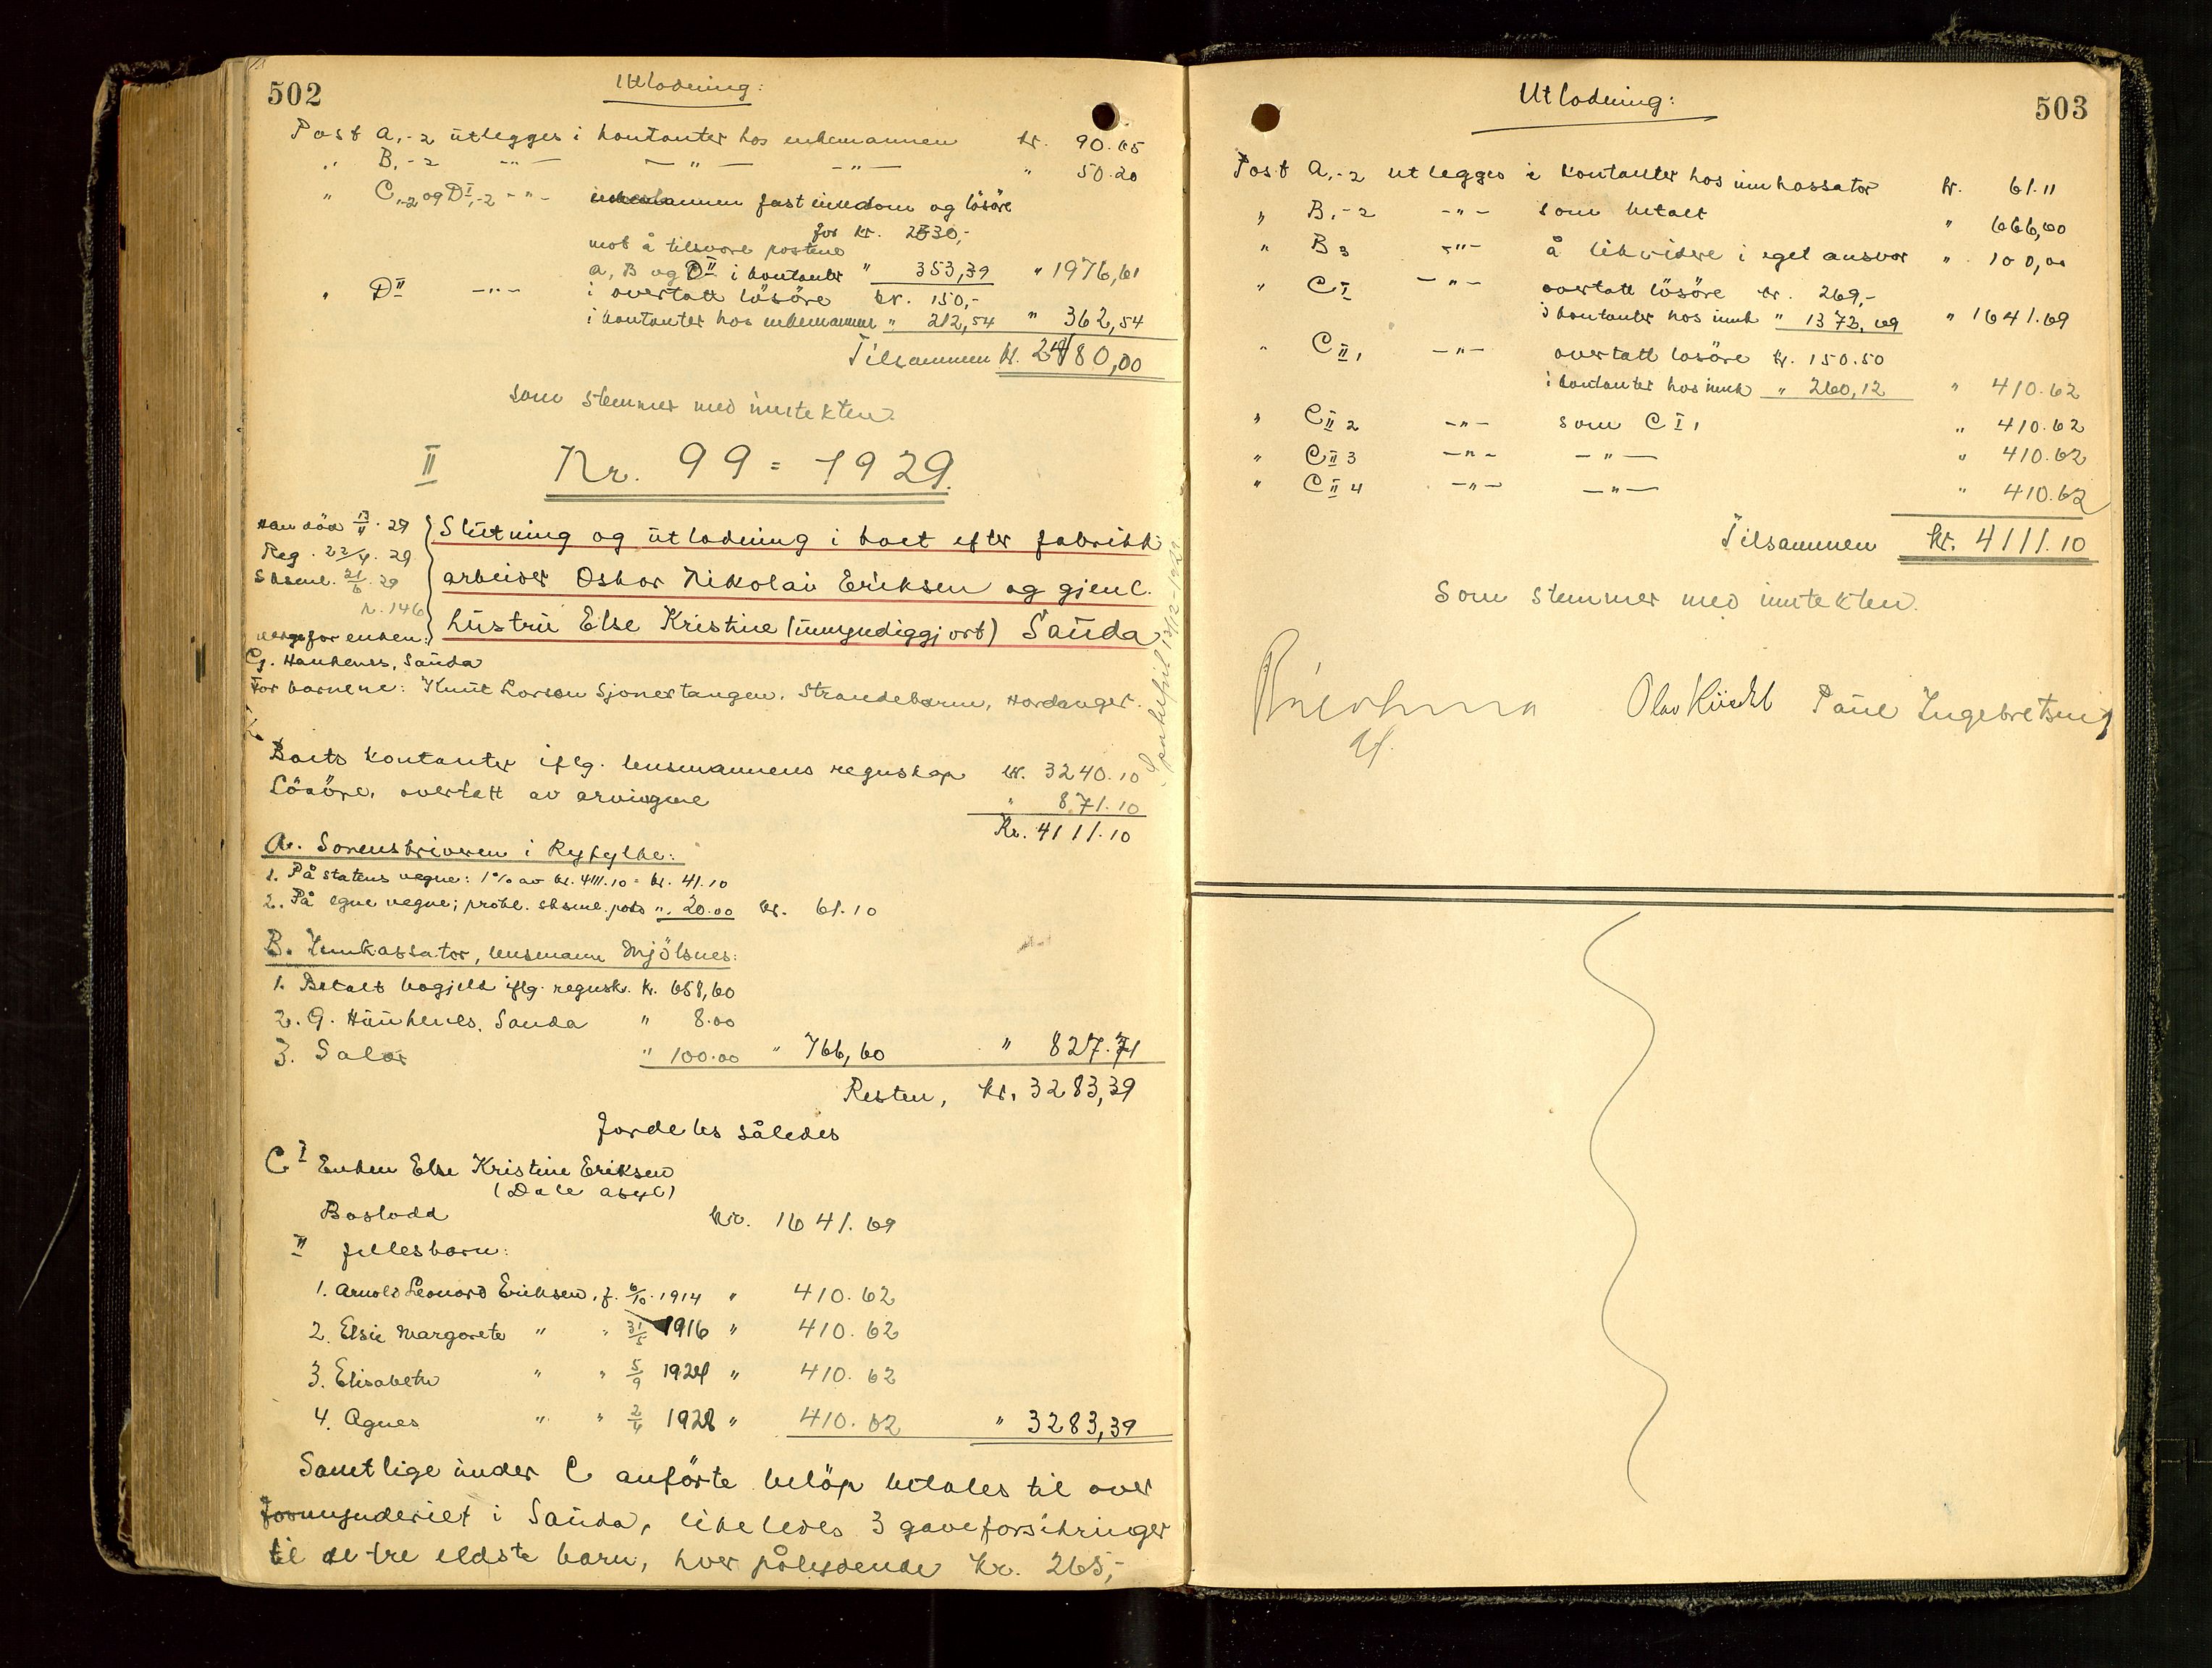 502
Utlodning:
Post A,-2 utlegges i kontanter hos enkemannen kr. 90.65
" B,-2 -"- -"- -"- " 50.20
" C,-2 og D I,-2 -"- fast eiendom og lösöre
for kr. 2330,-
mot å tilsvare postene
A, B og D II i kontanter " 353,39 " 1976,61
" D II -"- i overtatt lösöre kr. 150,-
i kontanter hos enkemannen " 212,54 " 362,54
Tilsammen kr. 2480,00
som stemmer med inntekten.
II Nr. 99 = 1929.
Han död 13/11. 29
Reg. 22/4. 29
Sksml. 21/6. 29
n. 146
verge for enken:
Slutning og utlodning i boet efter fabrikk-
arbeider Oskar Nikolai Eriksen og gjenl.
hustru Else Kristine (umyndiggjort) Sauda
G. Haukenes, Sauda
For barnene: Knut Larson Sjonertangen, Strandebarm, Hardanger.
Boets kontanter iflg. lensmannens regnskap kr. 3240.10
Lösöre, overtatt av arvingene " 871.10
Kr. 4111.10
A. Sorenskriveren i Ryfylke:
1. På statens vegne: 1% av kr. 4111.10 = kr. 41.10
2. På egne vegne; prokl. sksml. porto " 20.00 kr. 61.10
B. Innkassator, lensmann Mjölsnes:
1. Betalt bogjeld iflg. regnsk. kr. 658,60
2. G. Haukenes, Sauda " 8.00
3. Salær " 100.00 " 766,60 " 827.71
Resten, kr. 3283,39
fordeles således
C I Enken Else Kristine Eriksen
(Dale asyl)
Boslodd kr. 1641.69
II fellesbarn:
1. Arnold Leonard Eriksen, f. 6/10. 1914 " 410.62
2. Elsie Margarete " " 31/5 1916 " 410.62
3. Elisabeth " " 5/9 1924 " 410.62
4. Agnes " " 2/4 1928 " 410.62 " 3283,39
Samtlige under C anförte belöp betales til over
formynderiet i Sauda, likeledes 3 gaveforsikringer
til de tre eldste barn, hver pålydende kr. 265,-
503
Utlodning:
Post A,-2 utlegges i kontanter hos innkassator kr. 61.11
" B,-2 -"- som betalt " 666,60
" B 3 -"- å likvidere i eget ansvar " 100,00
" C I -"- overtatt lösöre kr. 269,-
i kontanter hos innk " 1372,69 " 1641.69
" C II 1 -"- overtatt losöre kr. 150.50
i kontanter hos innk " 260,12 " 410.62
" C II 2 -"- som C I 1 " 410.62
" C II 3 -"- -"- " 410.62
" C II 4 -"- -"- " 410.62
Tilsammen kr. 4111.10
Som stemmer med inntekten.
Olav Paul Ingebretsen